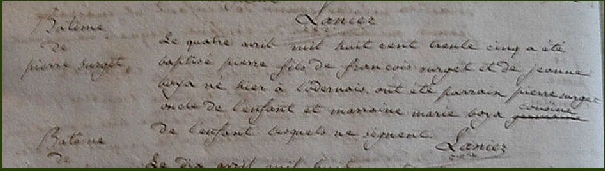 Lanier
Batême
de
pierre surget,
Le quatre avril mil huit cent trente cinq a été
baptisé pierre fils de francois surget et de jeanne
boya né hier à lodernais, ont été parrain pierre surget
oncle de l'enfant et marraine marie boya germaine cousine
de l'enfant lesquels ne signent.
Lanier
Batême
de
Le dix avril mil huit